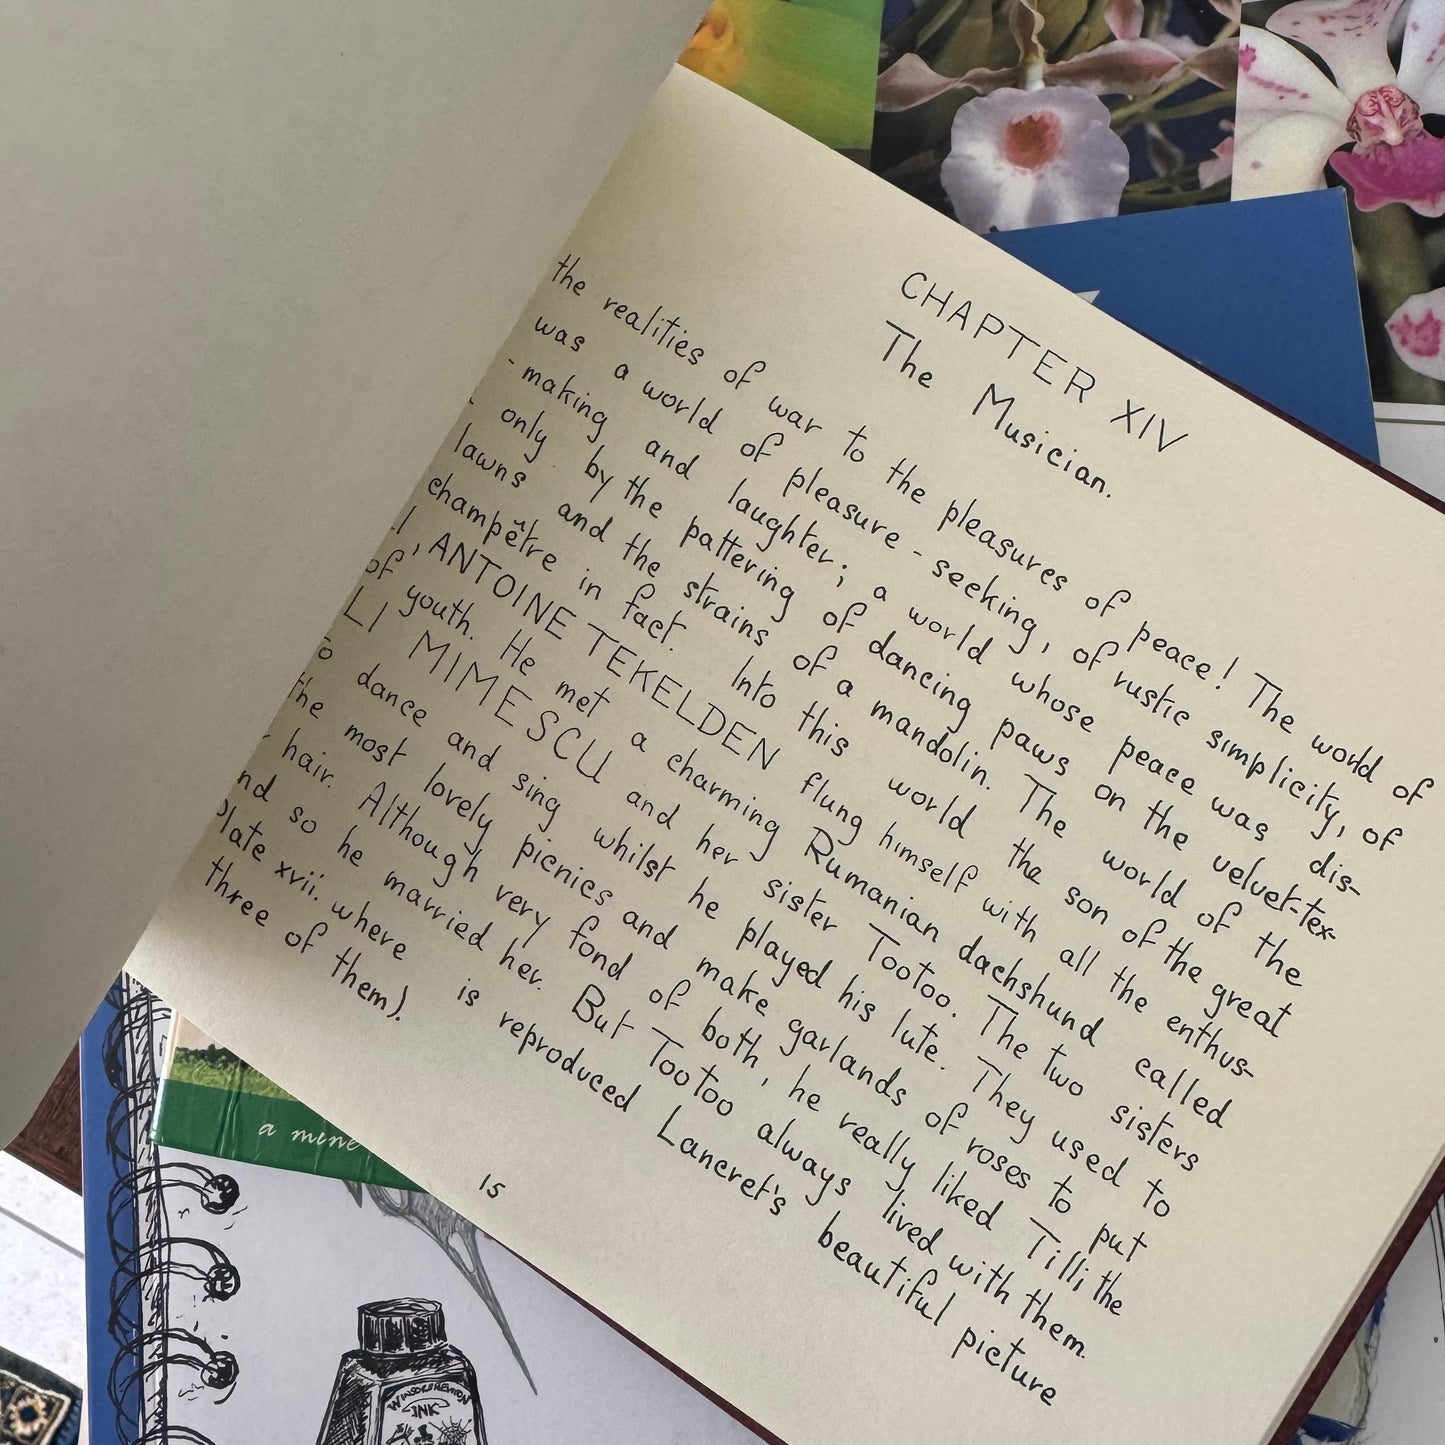 CHAPTER XIV
The Musician.
the realities of war to the pleasures of peace! The world of
was a world of pleasure-seeking, of rustic simplicity, of
-making and laughter; a world whose peace was dis-
only by the pattering of dancing paws on the velvet-tex-
lawns and the strains of a mandolin. The world of the
champêtre in fact. Into this world the son of the great
ANTOINE TEKELDEN flung himself with all the enthus-
of youth. He met a charming Rumanian dachshund called
LI MIMESCU and her sister Tootoo. The two sisters
dance and sing whilst he played his lute. They used to
the most lovely picnics and make garlands of roses to put
hair. Although very fond of both, he really liked Tilli the
nd so he married her. But Tootoo always lived with them.
plate xvii. where is reproduced Lancret's beautiful picture
three of them).
15
a mine
WINSOR & NEWTON
INK